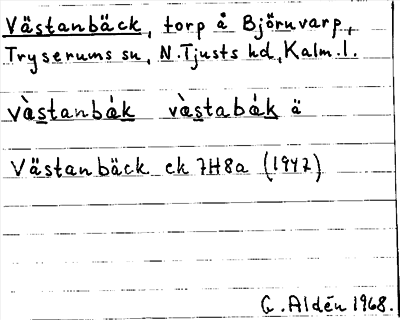 Västanbäck, torp å Björnvarp,
Tryserums sn, N. Tjusts hd, Kalm. l.
và̀stanbák và̀stabák ä
Västanbäck ek 7H8a (1947)
G. Aldén 1968.